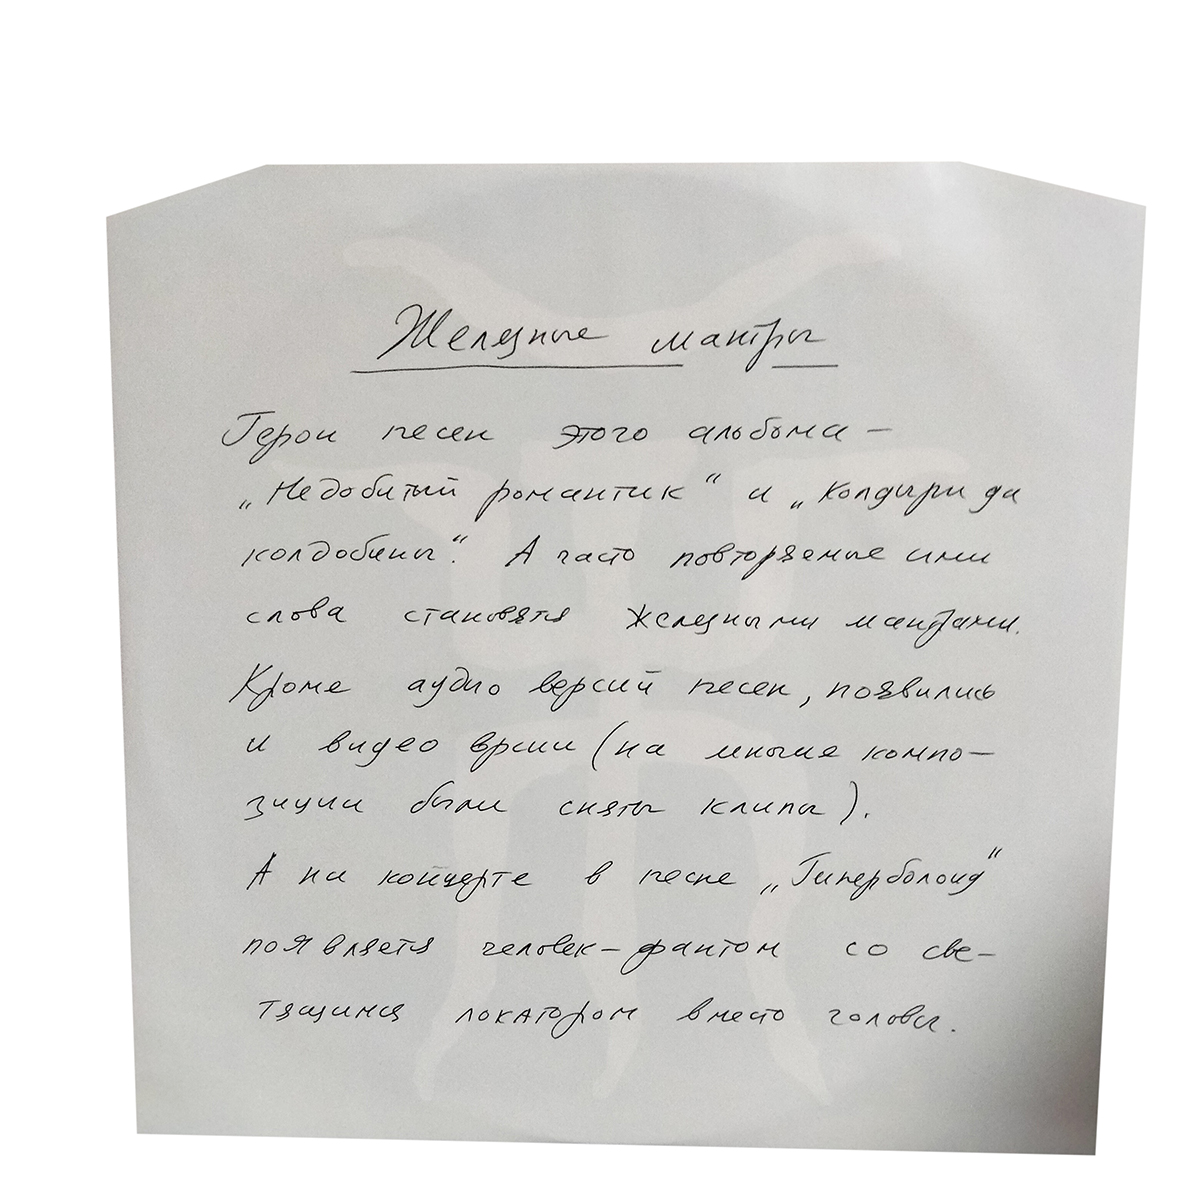 Железные мантры
Герои песен этого альбома –
„Недобитый романтик“ и „Колдыри да
колдобины“. А часто повторяемые ими
слова становятся железными мантрами.
Кроме аудио версий песен, появились
и видео врсии (на многие компо–
зиции были сняты клипы).
А на концерте в песне „Гиперболоид“
появляется человек–фантом со све–
тящимся локатором вместо головы.